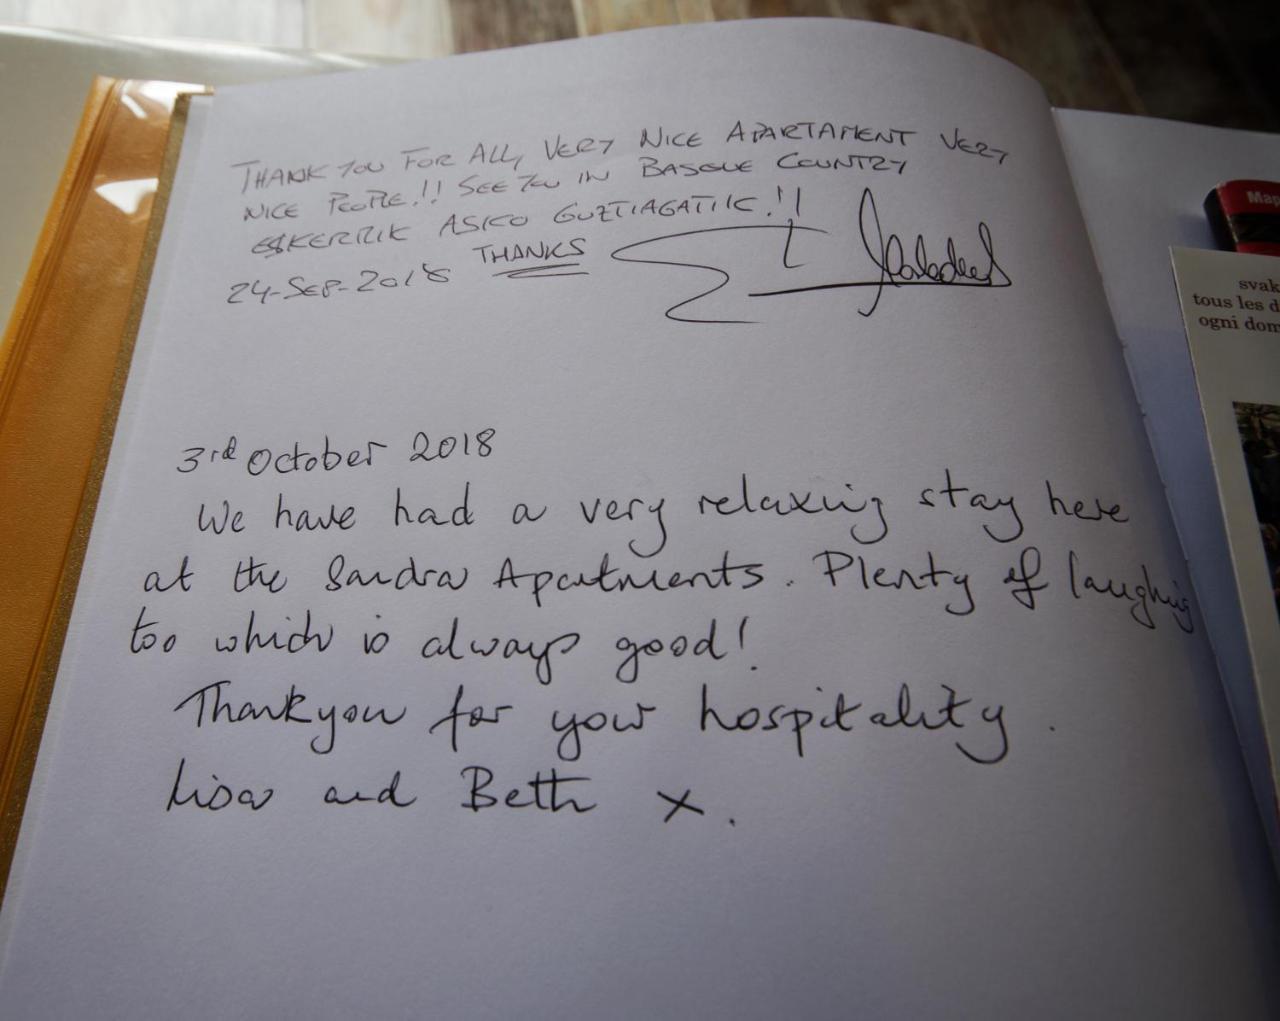 THANK YOU FOR ALL, VERY NICE APARTAMENT VERY
NICE PEOPLE!! SEE YOU IN BASQUE COUNTRY
ESKERRIK ASKO GUZTIAGATIK!!
24-SEP-2018 THANKS
3rd October 2018
We have had a very relaxing stay here
at the Sandra Apartments. Plenty of laughing
too which is always good!
Thankyou for your hospitality.
Lisa and Beth x.
Map
svak
tous les d
ogni dom